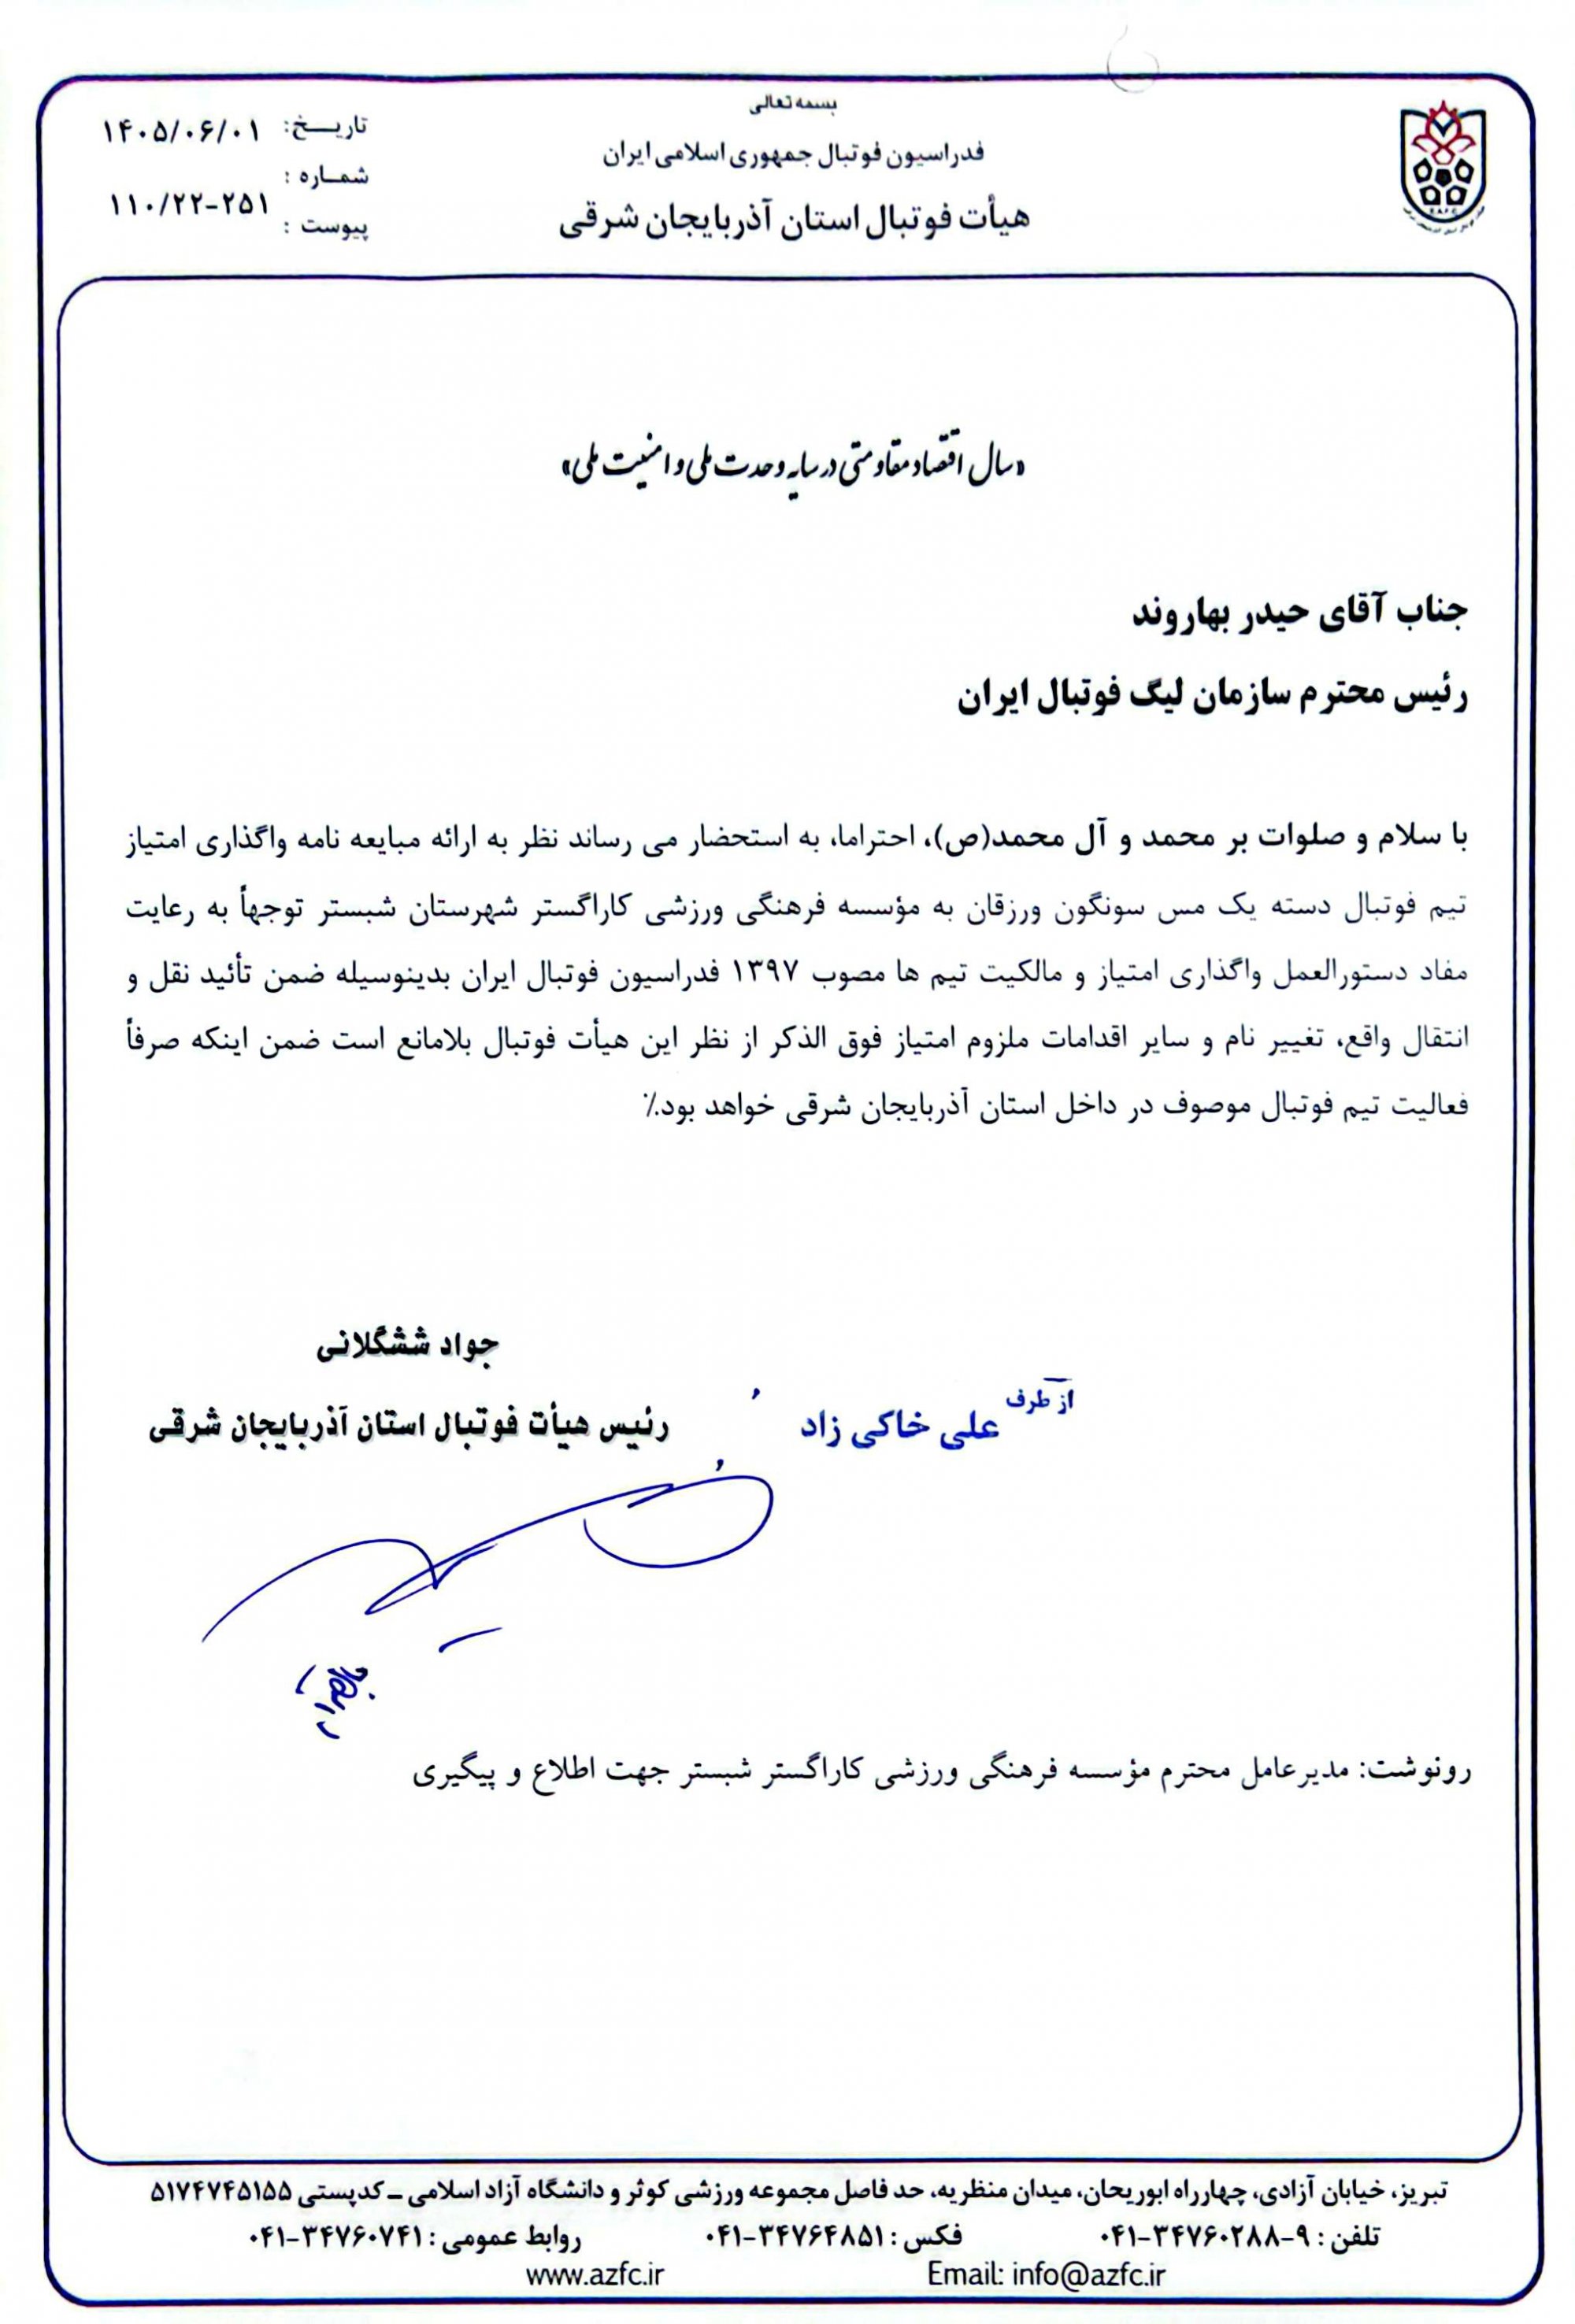 بسمه تعالی
فدراسیون فوتبال جمهوری اسلامی ایران
هیأت فوتبال استان آذربایجان شرقی
تاریخ: ۱۴۰۵/۰۶/۰۱
شماره :
۱۱۰/۲۲-۲۵۱
پیوست :
«سال اقتصاد مقاومتی در سایه وحدت ملی و امنیت ملی»
جناب آقای حیدر بهاروند
رئیس محترم سازمان لیگ فوتبال ایران
با سلام و صلوات بر محمد و آل محمد(ص)، احتراما، به استحضار می رساند نظر به ارائه مبایعه نامه واگذاری امتیاز
تیم فوتبال دسته یک مس سونگون ورزقان به مؤسسه فرهنگی ورزشی کاراگستر شهرستان شبستر توجهاً به رعایت
مفاد دستورالعمل واگذاری امتیاز و مالکیت تیم ها مصوب ۱۳۹۷ فدراسیون فوتبال ایران بدینوسیله ضمن تأئید نقل و
انتقال واقع، تغییر نام و سایر اقدامات ملزوم امتیاز فوق الذکر از نظر این هیأت فوتبال بلامانع است ضمن اینکه صرفاً
فعالیت تیم فوتبال موصوف در داخل استان آذربایجان شرقی خواهد بود.٪
جواد ششگلانی
رئیس هیأت فوتبال استان آذربایجان شرقی
از طرف
علی خاکی زاد
رونوشت: مدیرعامل محترم مؤسسه فرهنگی ورزشی کاراگستر شبستر جهت اطلاع و پیگیری
تبریز، خیابان آزادی، چهارراه ابوریحان، میدان منظریه، حد فاصل مجموعه ورزشی کوثر و دانشگاه آزاد اسلامی ـ کدپستی ۵۱۷۴۷۴۵۱۵۵
تلفن : ۹-۰۴۱-۳۴۷۶۰۲۸۸ فکس : ۰۴۱-۳۴۷۶۴۸۵۱ روابط عمومی : ۰۴۱-۳۴۷۶۰۷۴۱
www.azfc.ir Email: info@azfc.ir